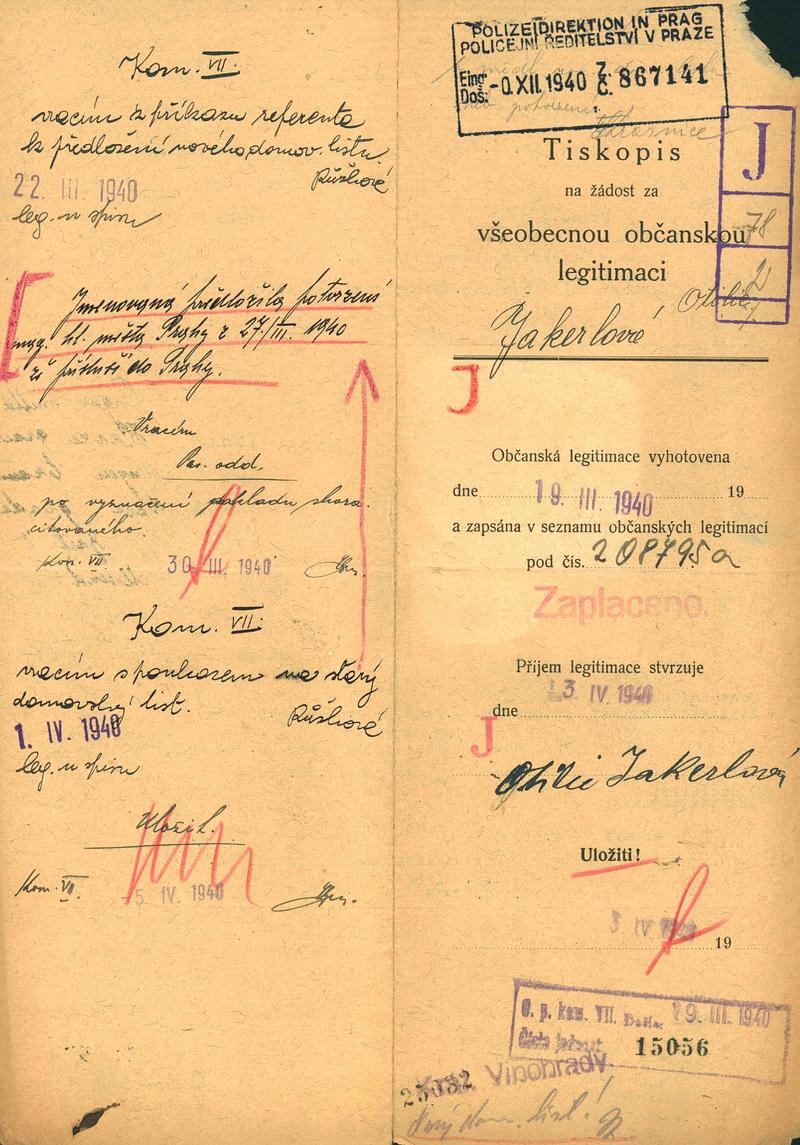 Kom. VII.
vracím z příkazu referenta
k předložení nového domov. listu.
Růžková
22 III 1940
leg. u spisu
Jmenovaná předložila potvrzení
mag. hl. města Prahy z 27/III. 1940
že přísluší do Prahy.
Vracím
Pas. odd.
po vyznačení pokladu shora
citovaného.
Kom. VII
30 III. 1940
Kom. VII.
vracím s poukazem na starý
domovský list.
Růžková
1. IV. 1940
leg. u spisu
Uložil.
Kom. VII.
-5 IV. 1940
POLIZEIDIREKTION IN PRAG
POLICEJNÍ ŘEDITELSTVÍ V PRAZE
Eing.
Doš.
XII. 1940
Z.
Č. 867141
Strašnice
J
78
2
Tiskopis
na žádost za
všeobecnou občanskou
legitimaci
Otilie
Jakerlové
J
Občanská legitimace vyhotovena
dne 19. III. 1940 19
a zapsána v seznamu občanských legitimací
pod čís. 208795a
Zaplaceno.
Příjem legitimace stvrzuje
dne 3. IV 1940
J
Otilie Jakerlová
Uložiti!
3 IV 1940 19
kom. VII. Došlo: 19. III. 1940
Číslo jednot.
15056
Kom. Vinohrady
25032
dom. list!